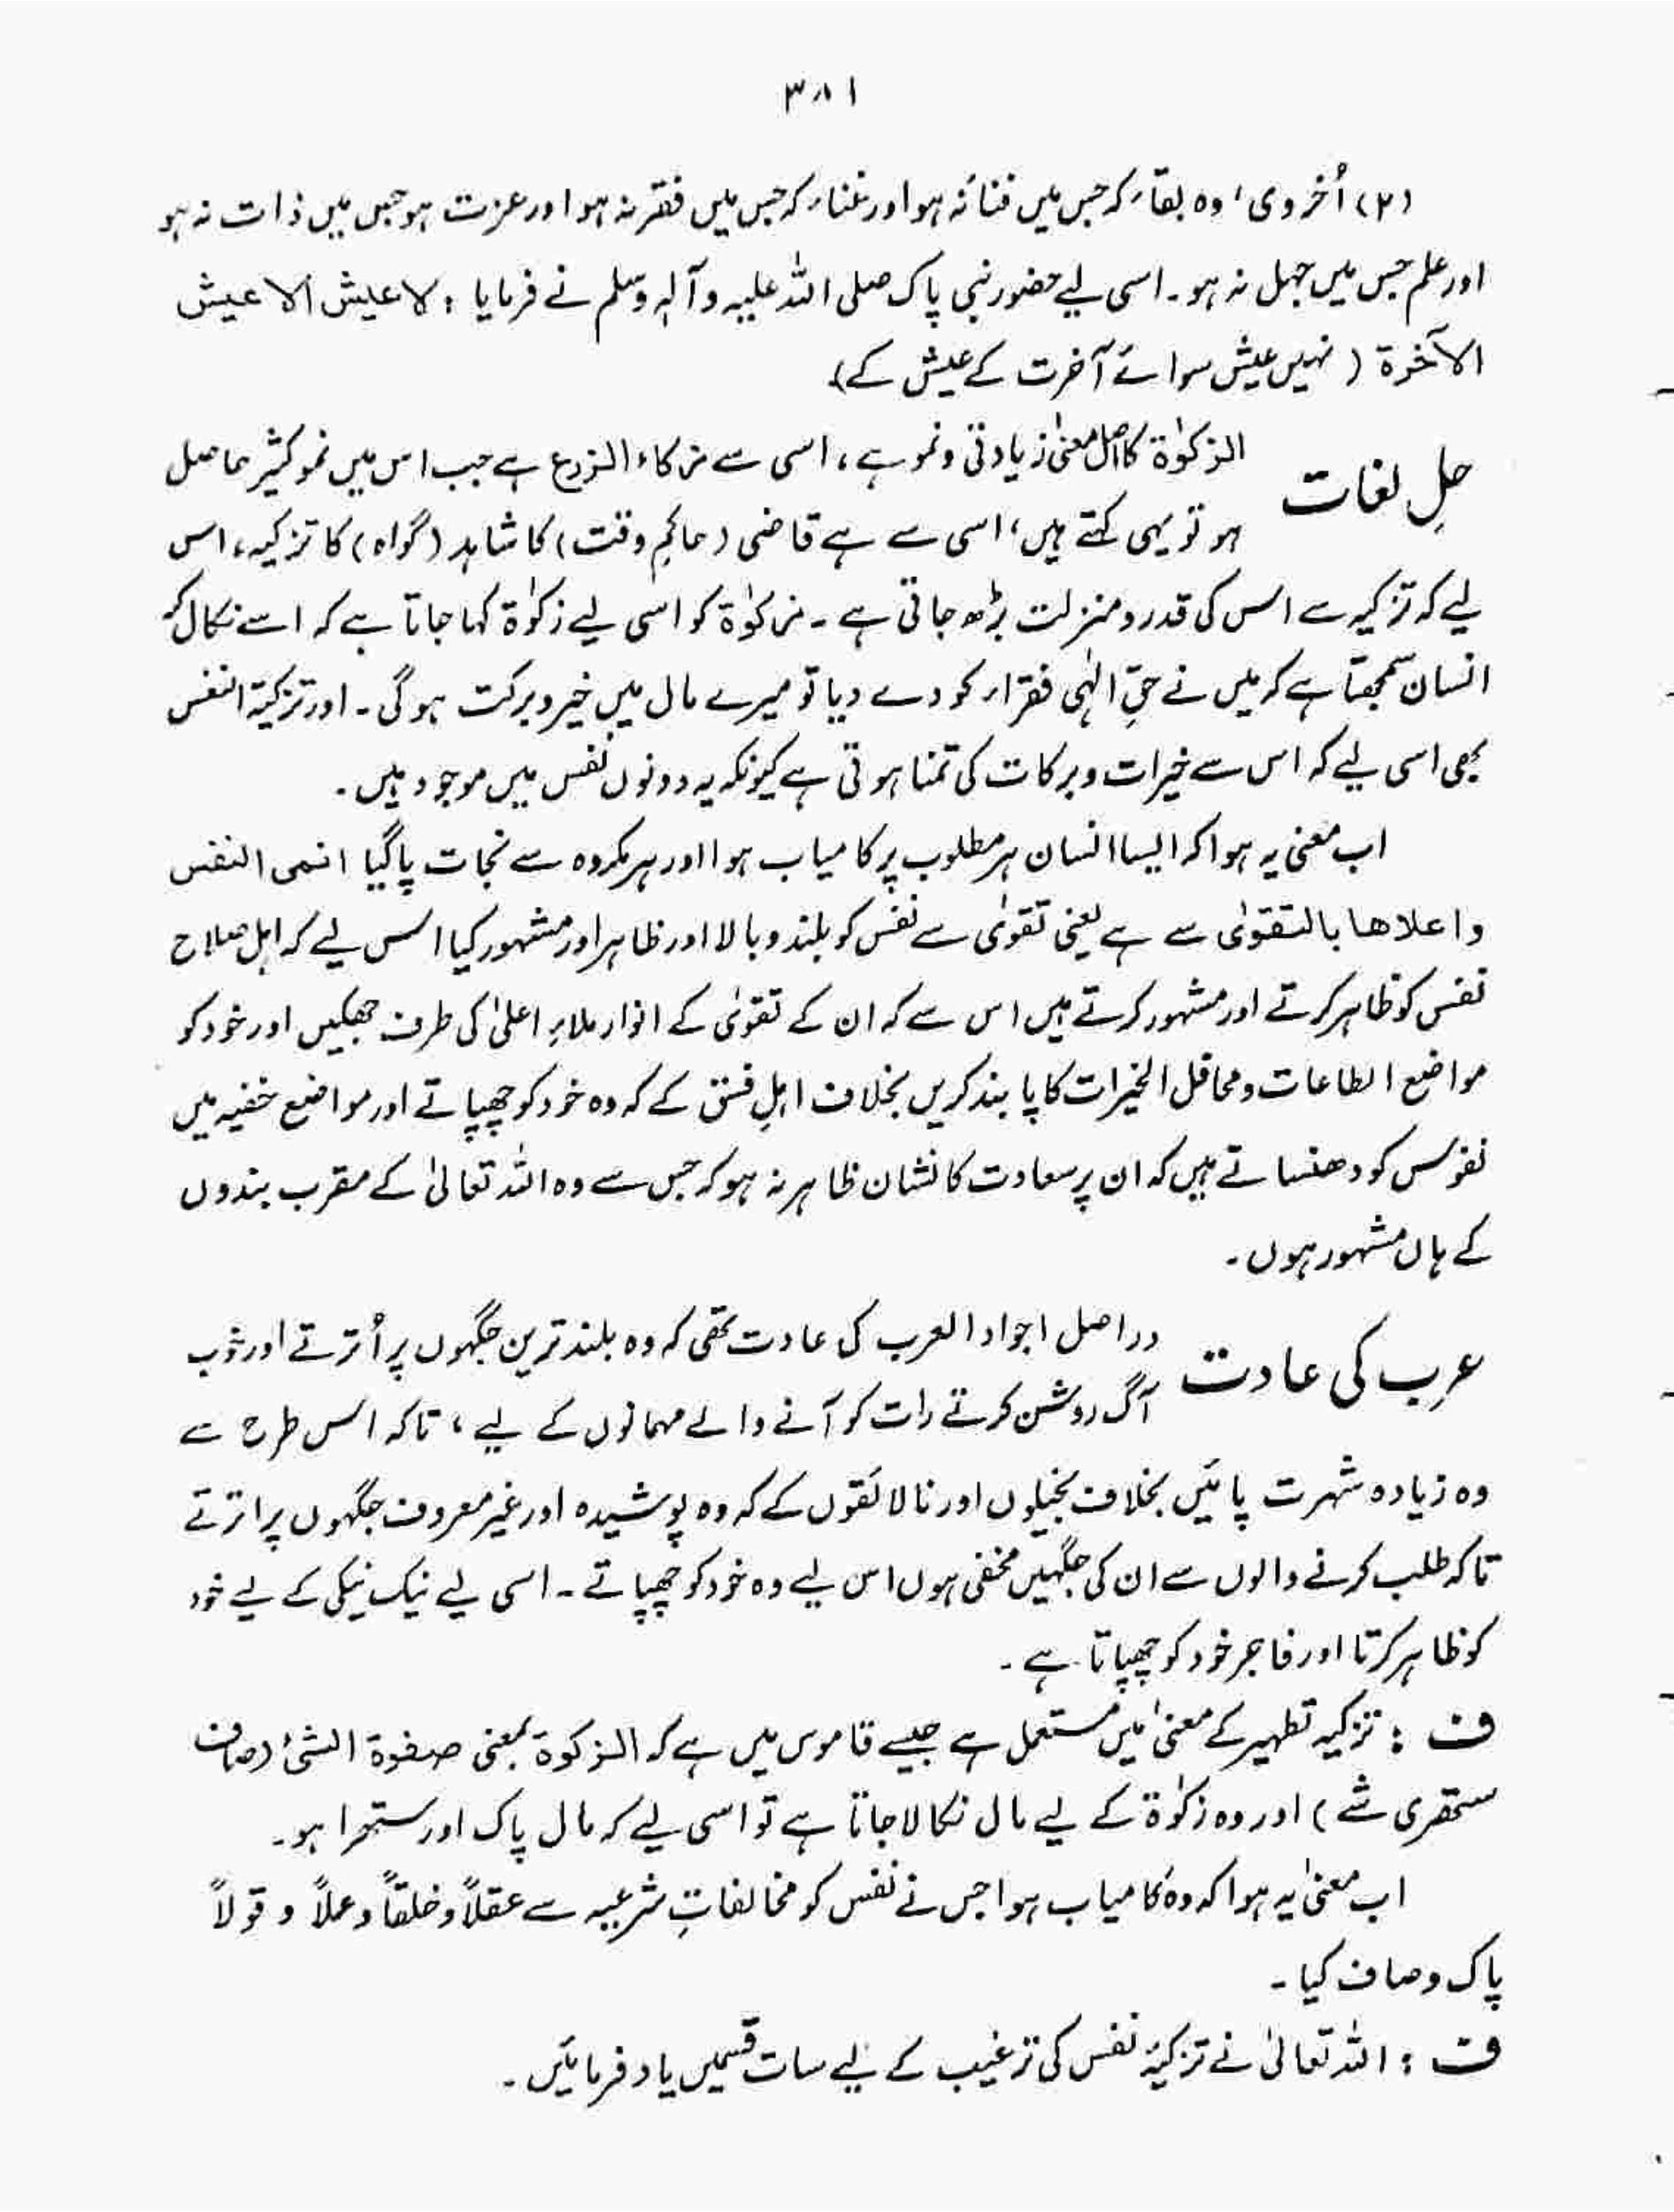 ۳۸۱
(۲) اُخروی، وہ بقاء کہ جس میں فنا نہ ہو اور غناء کہ جس میں فقر نہ ہو اور عزت ہو جس میں ذلت نہ ہو
اور علم جس میں جہل نہ ہو۔ اسی لیے حضور نبی پاک صلی اللہ علیہ وآلہٖ وسلم نے فرمایا : لا عیش الا عیش
الآخرۃ ( نہیں عیش سوائے آخرت کے عیش کے)
حلِ لغات الزکوٰۃ کا اصل معنیٰ زیادتی و نمو ہے، اسی سے زکاء الزرع ہے جب اس میں نمو کثیر حاصل
ہو تو یہی کہتے ہیں، اسی سے ہے قاضی (حاکمِ وقت) کا شاہد (گواہ) کا تزکیہ، اس
لیے کہ تزکیہ سے اس کی قدر و منزلت بڑھ جاتی ہے۔ زکوٰۃ کو اسی لیے زکوٰۃ کہا جاتا ہے کہ اسے نکال کر
انسان سمجھتا ہے کہ میں نے حقِ الٰہی فقراء کو دے دیا تو میرے مال میں خیر و برکت ہو گی۔ اور تزکیۃ النفس
بھی اسی لیے کہ اس سے خیرات و برکات کی تمنا ہوتی ہے کیونکہ یہ دونوں نفس میں موجود ہیں۔
اب معنیٰ یہ ہوا کہ ایسا انسان ہر مطلوب پر کامیاب ہوا اور ہر مکروہ سے نجات پا گیا انمی النفس
واعلاھا بالتقوٰی سے ہے یعنی تقوٰی سے نفس کو بلند و بالا اور ظاہر اور مشہور کیا اس لیے کہ اہلِ صلاح
نفس کو ظاہر کرتے اور مشہور کرتے ہیں اس سے کہ ان کے تقوٰی کے انوار ملاءِ اعلیٰ کی طرف جھکیں اور خود کو
مواضع الطاعات و محافل الخیرات کا پابند کریں بخلاف اہلِ فسق کے کہ وہ خود کو چھپاتے اور مواضع خفیہ میں
نفوس کو دھنساتے ہیں کہ ان پر سعادت کا نشان ظاہر نہ ہو کہ جس سے وہ اللہ تعالیٰ کے مقرب بندوں
کے ہاں مشہور ہوں۔
عرب کی عادت دراصل اجواد العرب کی عادت تھی کہ وہ بلند ترین جگہوں پر اُترتے اور خوب
آگ روشن کرتے رات کو آنے والے مہمانوں کے لیے، تاکہ اس طرح سے
وہ زیادہ شہرت پائیں بخلاف بخیلوں اور نالائقوں کے کہ وہ پوشیدہ اور غیر معروف جگہوں پر اترتے
تاکہ طلب کرنے والوں سے ان کی جگہیں مخفی ہوں اس لیے وہ خود کو چھپاتے۔ اسی لیے نیک نیکی کے لیے خود
کو ظاہر کرتا اور فاجر خود کو چھپاتا ہے۔
ف : تزکیہ تطہیر کے معنیٰ میں مستعمل ہے جیسے قاموس میں ہے کہ الزکوۃ بمعنی صفوۃ الشئ (صاف
ستھری شے) اور وہ زکوٰۃ کے لیے مال نکالا جاتا ہے تو اسی لیے کہ مال پاک اور ستھرا ہو۔
اب معنیٰ یہ ہوا کہ وہ کامیاب ہوا جس نے نفس کو مخالفاتِ شرعیہ سے عقلاً و خلقاً و عملاً و قولاً
پاک و صاف کیا۔
ف : اللہ تعالیٰ نے تزکیۂ نفس کی ترغیب کے لیے سات قسمیں یاد فرمائیں۔